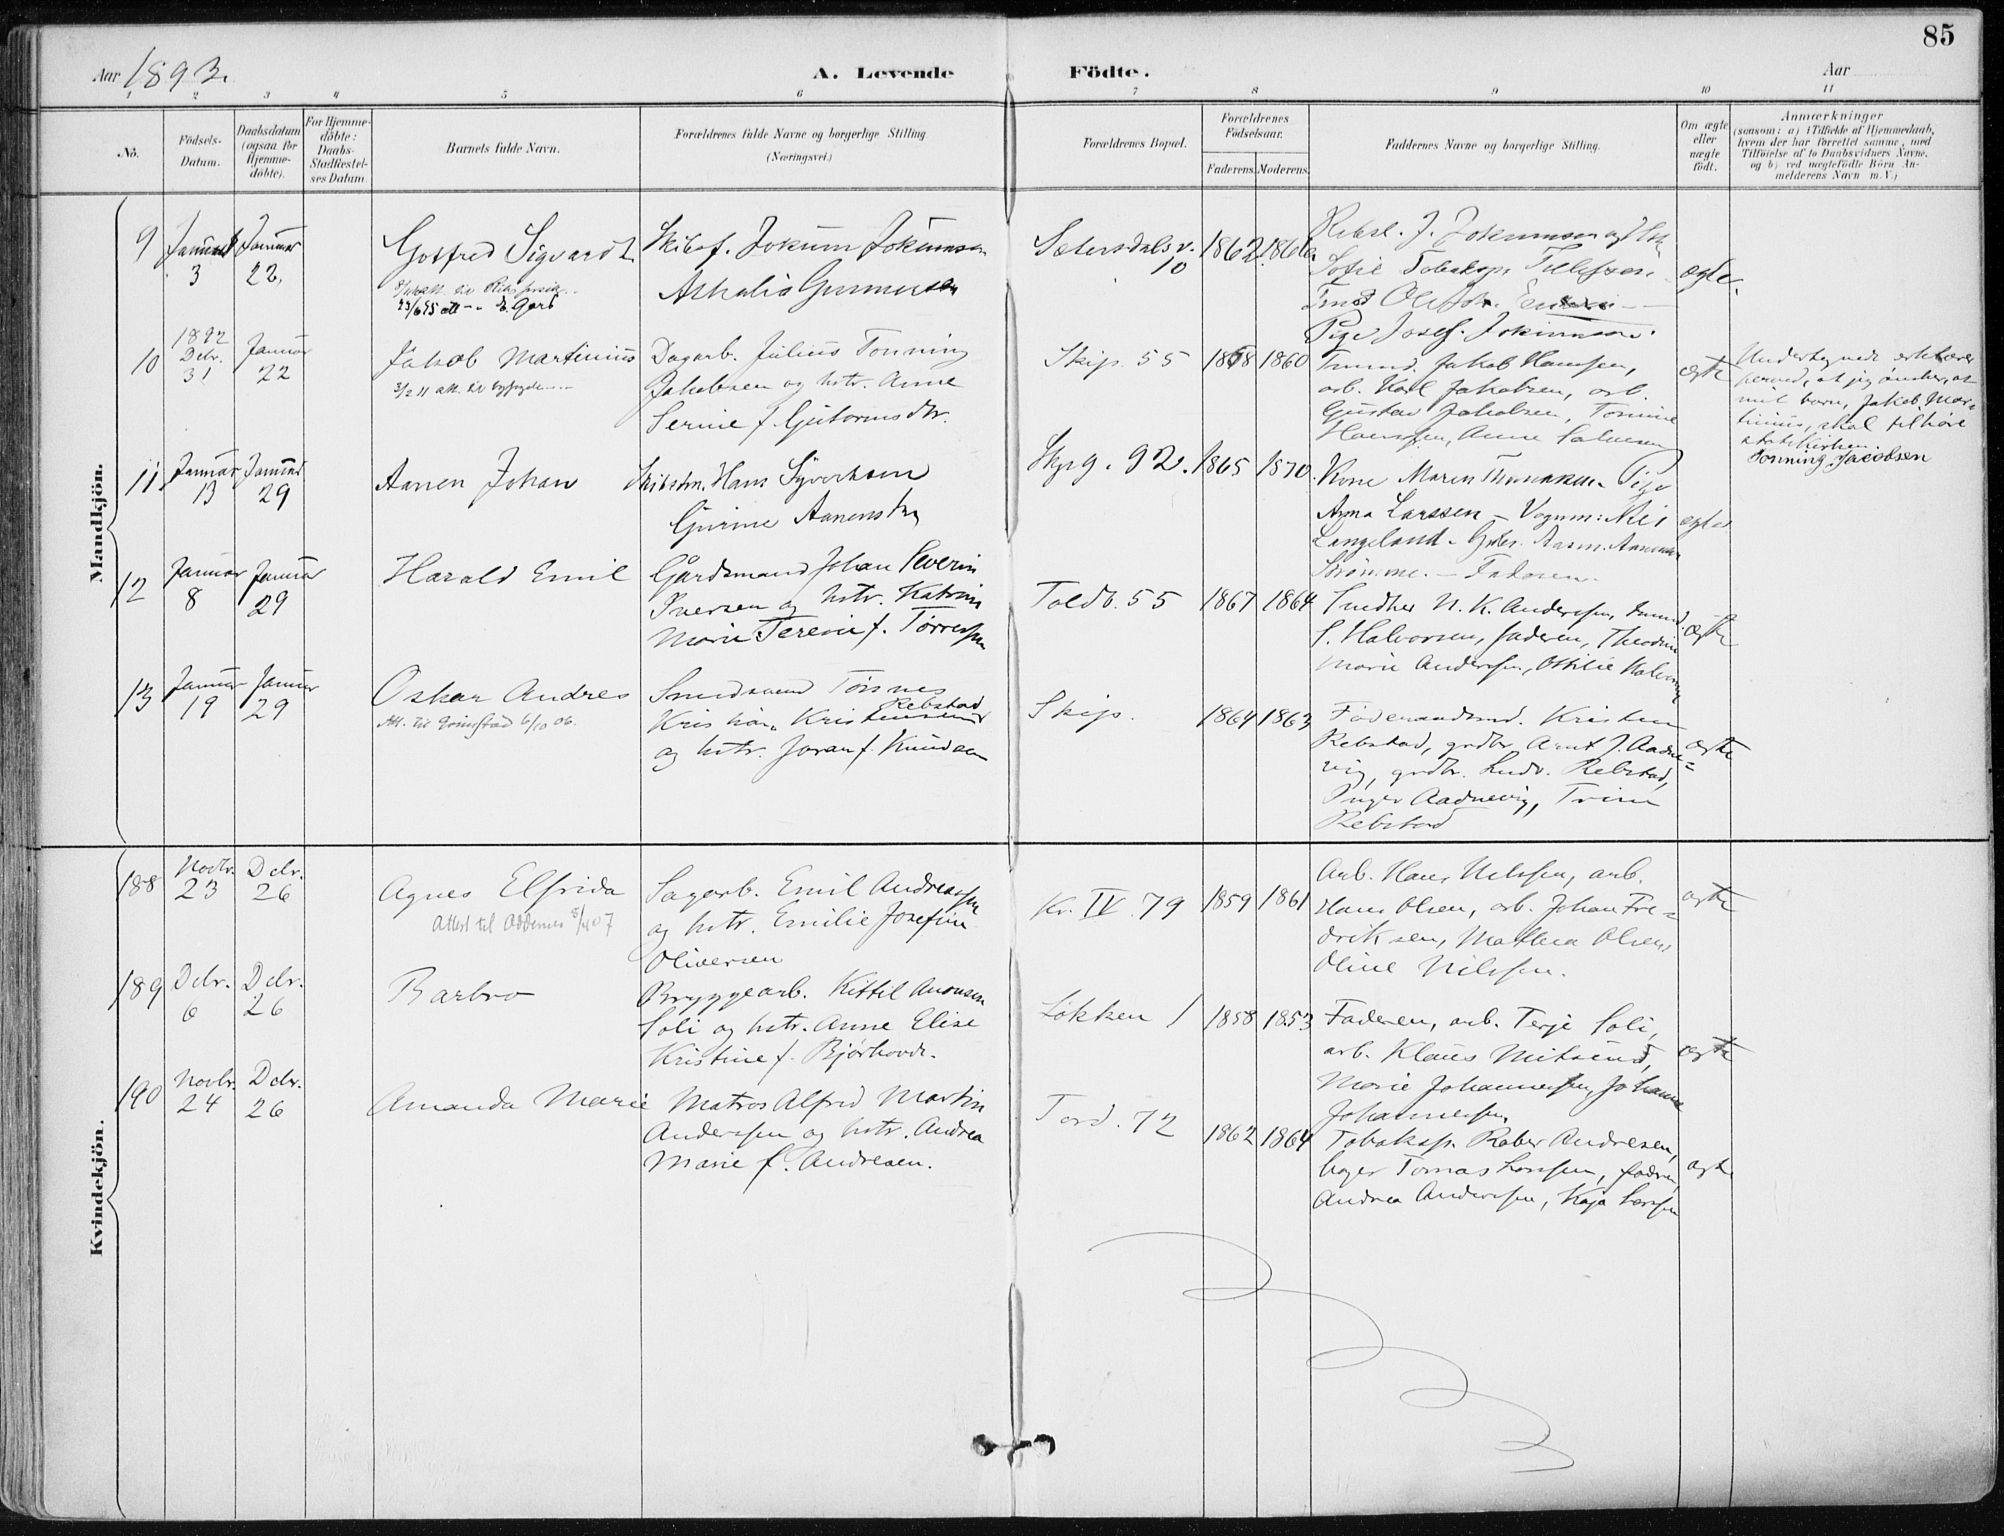 85
Aar 1893.
A. Levende Födte.
Aar
1 2 3 4 5 6 7 8 9 10 11
No.
Födsels-
Datum.
Daabsdatum
(ogsaa for
Hjemme-
döbte).
For Hjemme-
döbte:
Daabs-
Stadfæstel-
ses Datum.
Barnets fulde Navn.
Forældrenes fulde Navne og borgerlige Stilling.
(Næringsvei.)
Forældrenes Bopæl.
Forældrenes
Födselsaar.
Faderens. Moderens.
Faddernes Navne og borgerlige Stilling.
Om ægte
eller
uægte
födt.
Anmærkninger
(saasom: a) i Tilfælde af Hjemmedaab,
hvem der har forrettet samme, med
Tilföielse af to Daabsvidners Navne,
og b) ved uægtefödte Börn An-
melderens Navn m. V.)
Mandkjön.
9
Januar
3
Januar
22.
Gotfred Sigvard
Jokum Jokumsen
Athalia Gunnersen
Sætersdalsv.
10
1862 1866
Rebsl. J. Jokumsen
Sofie Tobaksp. Tellefsen
Pige Josef. Jokumsen.
ægte.
10
1892
Debr.
31
Januar
22
Jakob Martinius
Dagarb. Julius Tonning
Jakobsen og hstr. Anne
Serine f. Gutormsdtr.
Skip. 55
1868 1860
Tmmd. Jakob Hansen,
arb. Karl Jakobsen, arb.
Gustav Jakobsen, Tomine
Hansen, Anne Salvesen
ægte
Undertegnede erklærer
herved, at jeg ønsker, at
mit barn, Jakob Mar-
tinius, skal tilhøre
statskirken.
Tonning Jacobsen
11
Januar
13
Januar
29
Aanen Johan
Skibstm. Hans Syvertsen
Gurine Aanensdtr
Skprg. 92.
1865 1870.
Kone Maren Pige
Anna Larssen - Vognm: Nils
Langeland -
- Faderen.
ægte
12
Januar
8
Januar
29
Harald Emil
Gårdsmand Johan Severin
Iversen og hstr. Katrine
Marie Terecie f. Tørressen
Toldb. 55
1867 1864
Snedker N. K. Anderssen, tmmd.
S. Halvorsen, faderen, Theodine
Marie Anderssen, Ottilie Halvorsen
ægte
13
Januar
19
Januar
29
Oskar Andres
Att. til Grimstad 6/10 06.
Smedsvend Tønnes
Rebstad
Kristian Kristensen
og hstr. Joran f. Knudsen
Skip.
1864 1863
Føderaadsmd. Kristen
Rebstad, grdbr. Arnt J. Aadne-
vig, grdbr. Ludv. Rebstad,
Inger Aadnevig, Trine
Rebstad
ægte
Kvindekjön.
188
Novbr.
23
Debr.
26
Agnes Elfrida
Attest til Oddernes 8/4 07
Sagarb. Emil Andreassen
og hstr. Emilie Josefine
Oliversen
Kr. IV. 79
1859 1861
Arb. Hans Nilssen, arb.
Hans Olsen, arb. Johan Fre-
driksen, Mathea Olsen,
Oline Nilssen.
ægte
189
Debr.
6
Debr.
26
Barbro
Bryggearb. Kittil Aronsen
Soli og hstr. Anne Elise
Kristine f. Bjørhovde.
Løkken 1
1858 1853
Faderen, arb. Terje Soli,
arb. Klaus Mitsund,
Marie Johannessen, Johanne
Johannessen
ægte
190
Novbr.
24
Debr.
26
Amanda Marie
Matros Alfred Martin
Anderssen og hstr. Andrea
Marie f. Andresen.
Tord. 72
1862 1864
Tobaksp. Rober Andresen,
bager Tomas Larssen, faderen,
Andrea Anderssen, Kaja Larssen
ægte